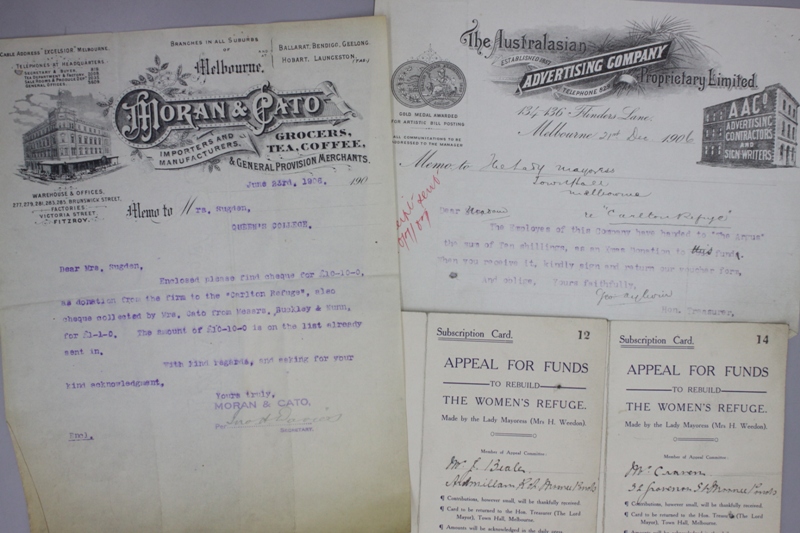 CABLE ADDRESS "EXCELSIOR" MELBOURNE.
TELEPHONES AT HEADQUARTERS
SECRETARY & BUYER,
TEA DEPARTMENT & FACTORY,
SALE ROOMS & PRODUCE DEPT
GENERAL OFFICES,
BRANCHES IN ALL SUBURBS
OF
Melbourne,
BALLARAT, BENDIGO, GEELONG.
HOBART, LAUNCESTON
MORAN & CATO
IMPORTERS AND
MANUFACTURERS.
GROCERS,
TEA, COFFEE,
& GENERAL PROVISION MERCHANTS.
WAREHOUSE & OFFICES,
277, 279, 281, 283, 285, BRUNSWICK STREET,
FACTORIES
VICTORIA STREET
FITZROY.
June 23rd, 1906. 190
Memo to Mrs. Sugden,
QUEEN'S COLLEGE.
Dear Mrs. Sugden,
Enclosed please find cheque for £10-10-0,
as donation from the firm to the "Carlton Refuge", also
cheque collected by Mrs. Cato from Messrs. Buckley & Nunn,
for £1-1-0. The amount of £10-10-0 is on the list already
sent in.
With kind regards, and asking for your
kind acknowledgment,
Yours truly,
MORAN & CATO,
Per
SECRETARY.
Encl.
The Australasian
ESTABLISHED
ADVERTISING COMPANY
TELEPHONE
Proprietary Limited.
GOLD MEDAL AWARDED
FOR ARTISTIC BILL POSTING
ALL COMMUNICATIONS TO BE
ADDRESSED TO THE MANAGER
134-136 Flinders Lane,
Melbourne 21st Dec 1906
AACo
ADVERTISING
CONTRACTORS
AND
SIGN WRITERS
Memo to The Lady Mayoress
Town Hall
Melbourne
Dear Madam re "Carlton Refuge"
The Employes of this Company have handed to "The Argus"
the sum of Ten shillings, as an Xmas Donation to this fund.
When you receive it, kindly sign and return our voucher form,
and oblige, Yours faithfully,
Hon. Treasurer.
Subscription Card. 12
APPEAL FOR FUNDS
TO REBUILD
THE WOMEN'S REFUGE.
Made by the Lady Mayoress (Mrs H. Weedon).
Member of Appeal Committee:
¶ Contributions, however small, will be thankfully received.
¶ Card to be returned to the Hon. Treasurer (The Lord
Mayor), Town Hall, Melbourne.
¶ Amounts will be acknowledged in the daily
Subscription Card. 14
APPEAL FOR FUNDS
TO REBUILD
THE WOMEN'S REFUGE.
Made by the Lady Mayoress (Mrs H. Weedon).
Member of Appeal Committee:
Mrs Craven
¶ Contributions, however small, will be thankfully received.
¶ Card to be returned to the Hon. Treasurer (The Lord
Mayor), Town Hall, Melbourne.